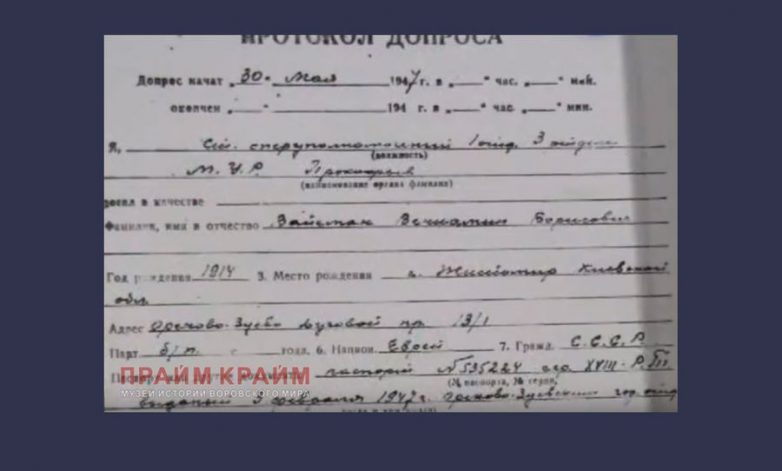 ПРОТОКОЛ ДОПРОСА
Допрос начат „30" мая 1947 г. в „ " час. „ " мин.
окончен „ " 194 г. в „ " час. „ " мин.
Я, Ст. оперуполномоченный 1 отд. 3 отдела
(должность)
М. У. Р. Прокофьев
(наименование органа фамилия)
в качестве
Фамилия, имя и отчество Вайсман Вениамин Борисович
Год рождения 1914 3. Место рождения г. Житомир Киевской
обл.
Адрес Орехово-Зуево Луговой пр. 13/1
Парт б/п с года. 6. Национ. Еврей 7. Гражд. С. С. С. Р.
паспорт № 595224 XVIII-Р.
(№ паспорта, № серии,
выданый 5 февраля 1947 г. Орехово-Зуевским гор. отд.
ПРАЙМ КРАЙМ
МУЗЕЙ ИСТОРИИ ВОРОВСКОГО МИРА